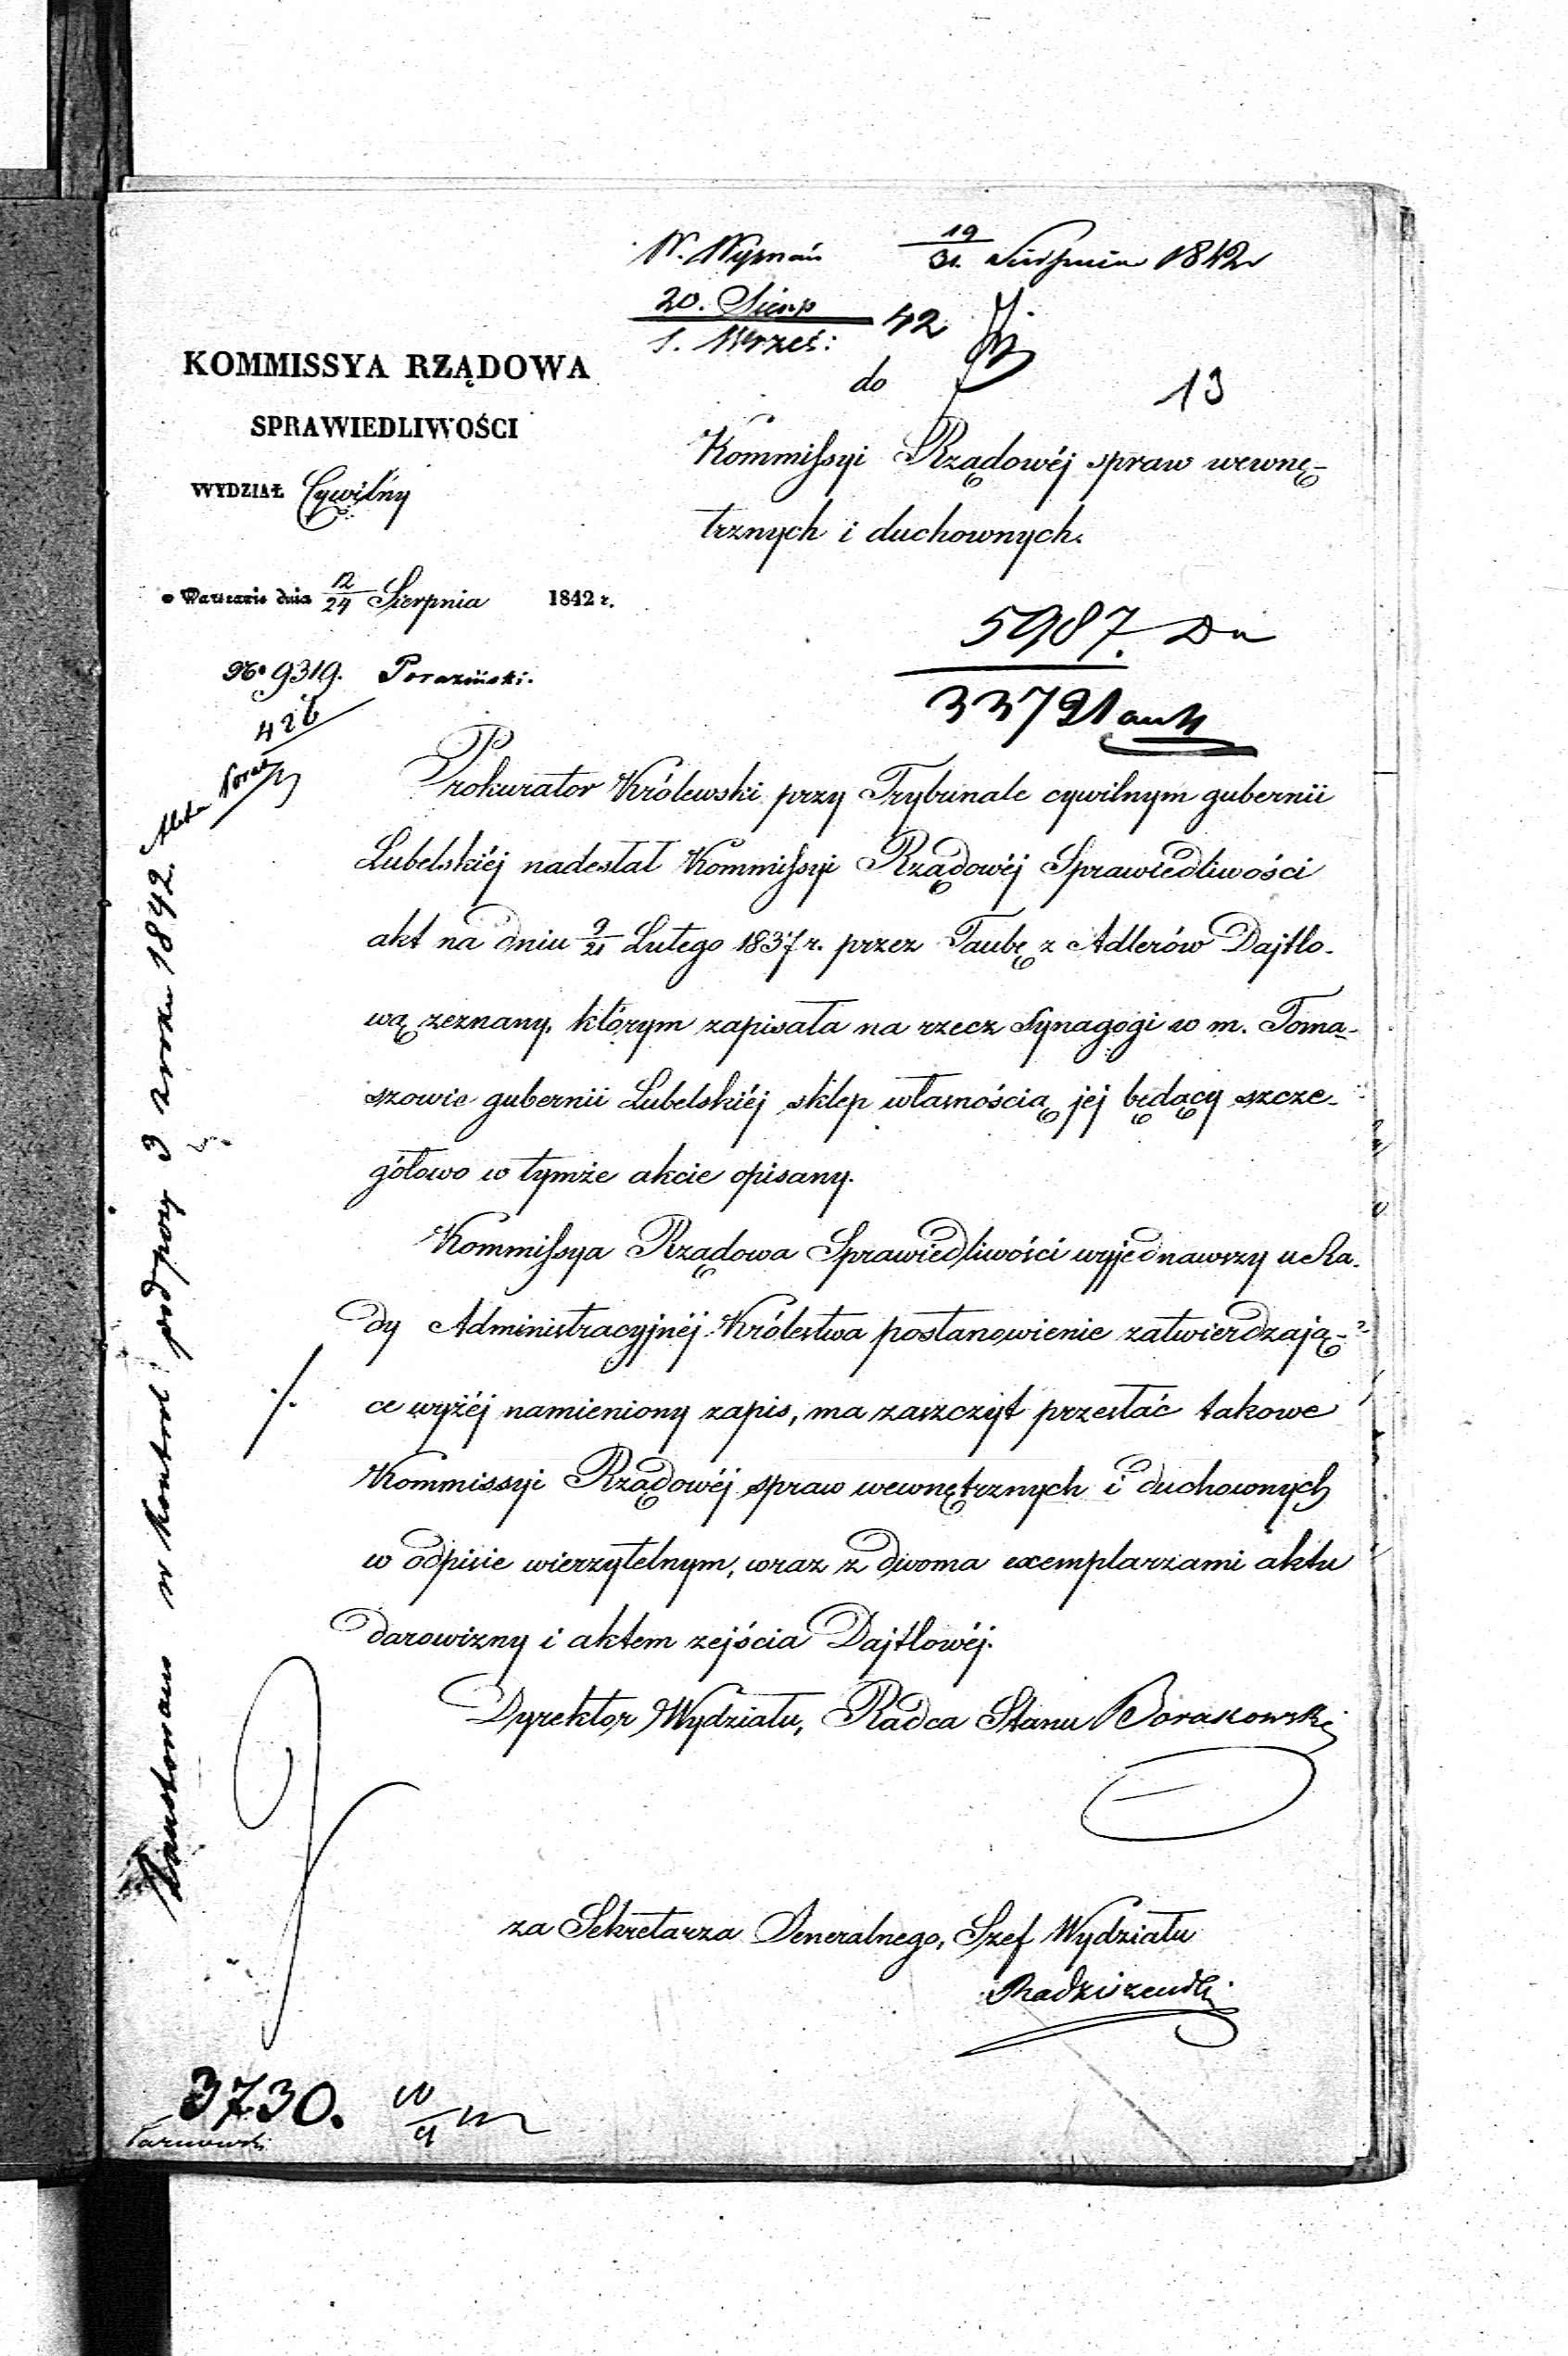 W. Wyznań 19/31. Sierpnia 1842
20. Sierp / 1. Wrześ: 42
KOMMISSYA RZĄDOWA
do
13
SPRAWIEDLIWOŚCI
Kommissyi Rządowéj spraw wewnę-
WYDZIAŁ Cywilny
trznych i duchownych.
w Warszawie dnia 12/24 Sierpnia 1842 r.
5987.
No 9319. Poraziński.
33721
426
Prokurator Królewski przy Trybunale cywilnym gubernii
Lubelskiéj nadesłał Kommissyi Rządowéj Sprawiedliwości
akt na dniu 9/21 Lutego 1837 r. przez Taubę z Adlerów Dajtlo-
wą zeznany, którym zapisała na rzecz Synagogi w m. Toma-
szowie gubernii Lubelskiéj sklep własnością jéj będący szcze-
gółowo w tymże akcie opisany.
Kommissya Rządowa Sprawiedliwości wyjednawszy u Ra-
dy Administracyjnéj Królestwa postanowienie zatwierdzają-
./.
ce wyżéj namieniony zapis, ma zaszczyt przesłać takowe
Kommissyi Rządowéj spraw wewnętrznych i duchownych
w odpisie wierzytelnym, wraz z dwoma exemplarzami aktu
darowizny i aktem zejścia Dajtlowéj.
Dyrektor Wydziału, Radca Stanu
za Sekretarza Generalnego, Szef Wydziału
3730.
w kontrol pod pozy 3 z roku 1842.